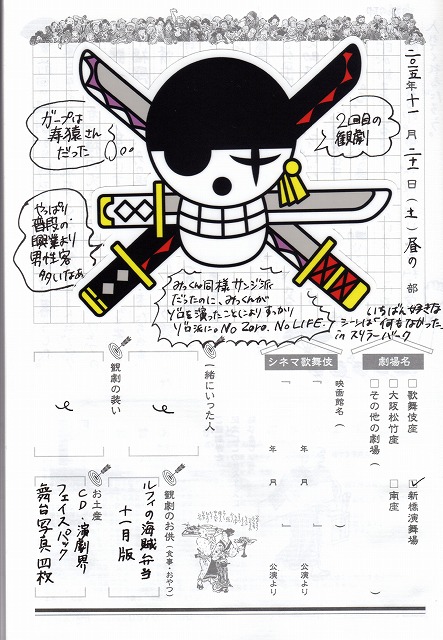 二〇一五年十一月二十一日(土)昼の部
2回目の
観劇
ガープは
寿猿さん
だった
やっぱり
普段の
興業より
男性客
多いなぁ
みっくん同様サンジ派
だったのに、みっくんが
ゾロを演ったことによりすっかり
ゾロ派に。No Zoro. No LIFE.
いちばん好きな
シーンは「何もなかった」
in スリラーバーク
劇場名
□歌舞伎座
□新橋演舞場
□大阪松竹座
□南座
□その他の劇場( )
シネマ歌舞伎
映画館名( )
「 」
年 月 公演より
「 」
年 月 公演より
一緒にいった人
観劇の装い
観劇のお供(食事・おやつ)
ルフィの海賊弁当
十一月版
お土産
CD・演劇界
フェイスパック
舞台写真四枚